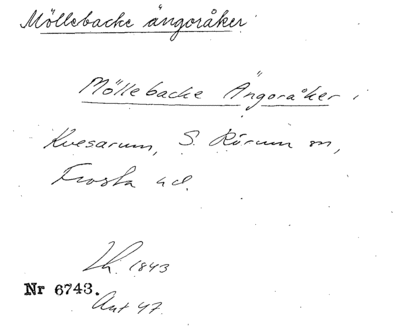 Möllebacke ängoråker
Möllebacke Ängoråker i
Kvesarum, S. Rörum sn,
Frosta hd.
Lh. 1843
Nr 6743.
Ant 47.